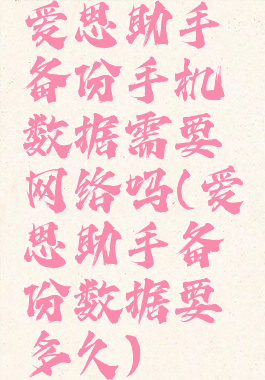 爱思助手
备份手机
数据需要
网络吗(爱
思助手备
份数据要
多久)